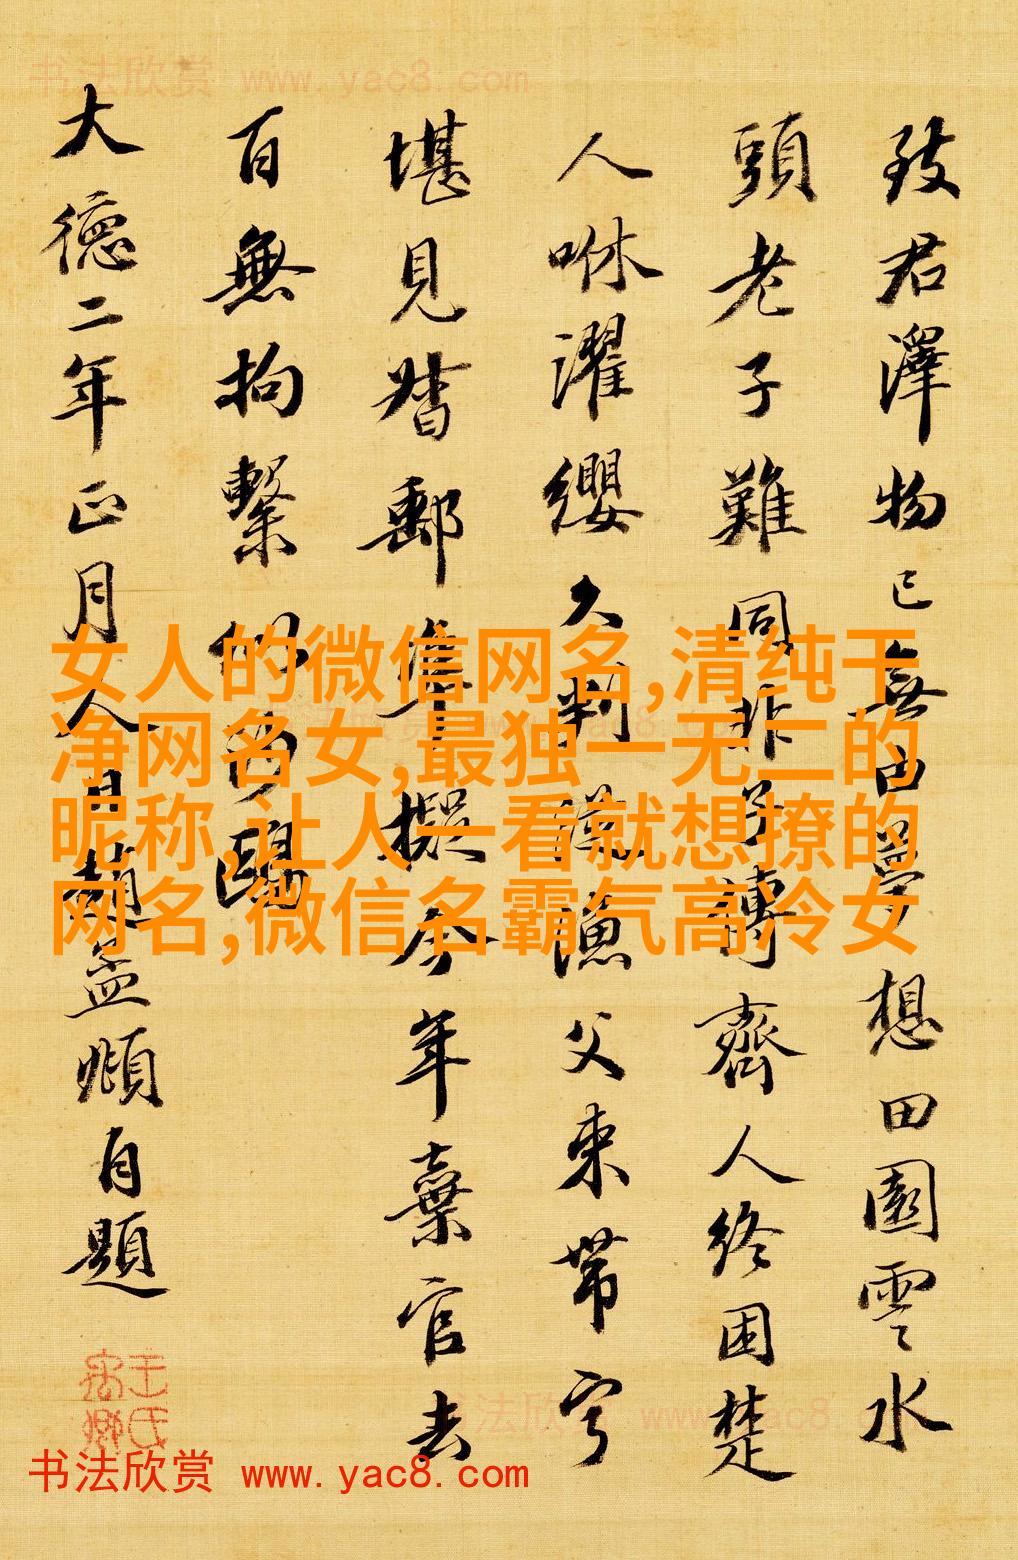 书法欣赏 www.yac8.com
致君澤物已無由夢想田園雲水
頭老子難同非子傳齊人終困楚
人咻濯纓久判漁父束帶寧
堪見督郵準擬今年棄官去
百無拘繫似鷗
大德二年正月人日趙孟頫自題
女人的微信网名,清纯干
净网名女,最独一无二的
昵称,让人一看就想撩的
网名,微信名霸气高冷女
书法欣赏 www.yac8.com